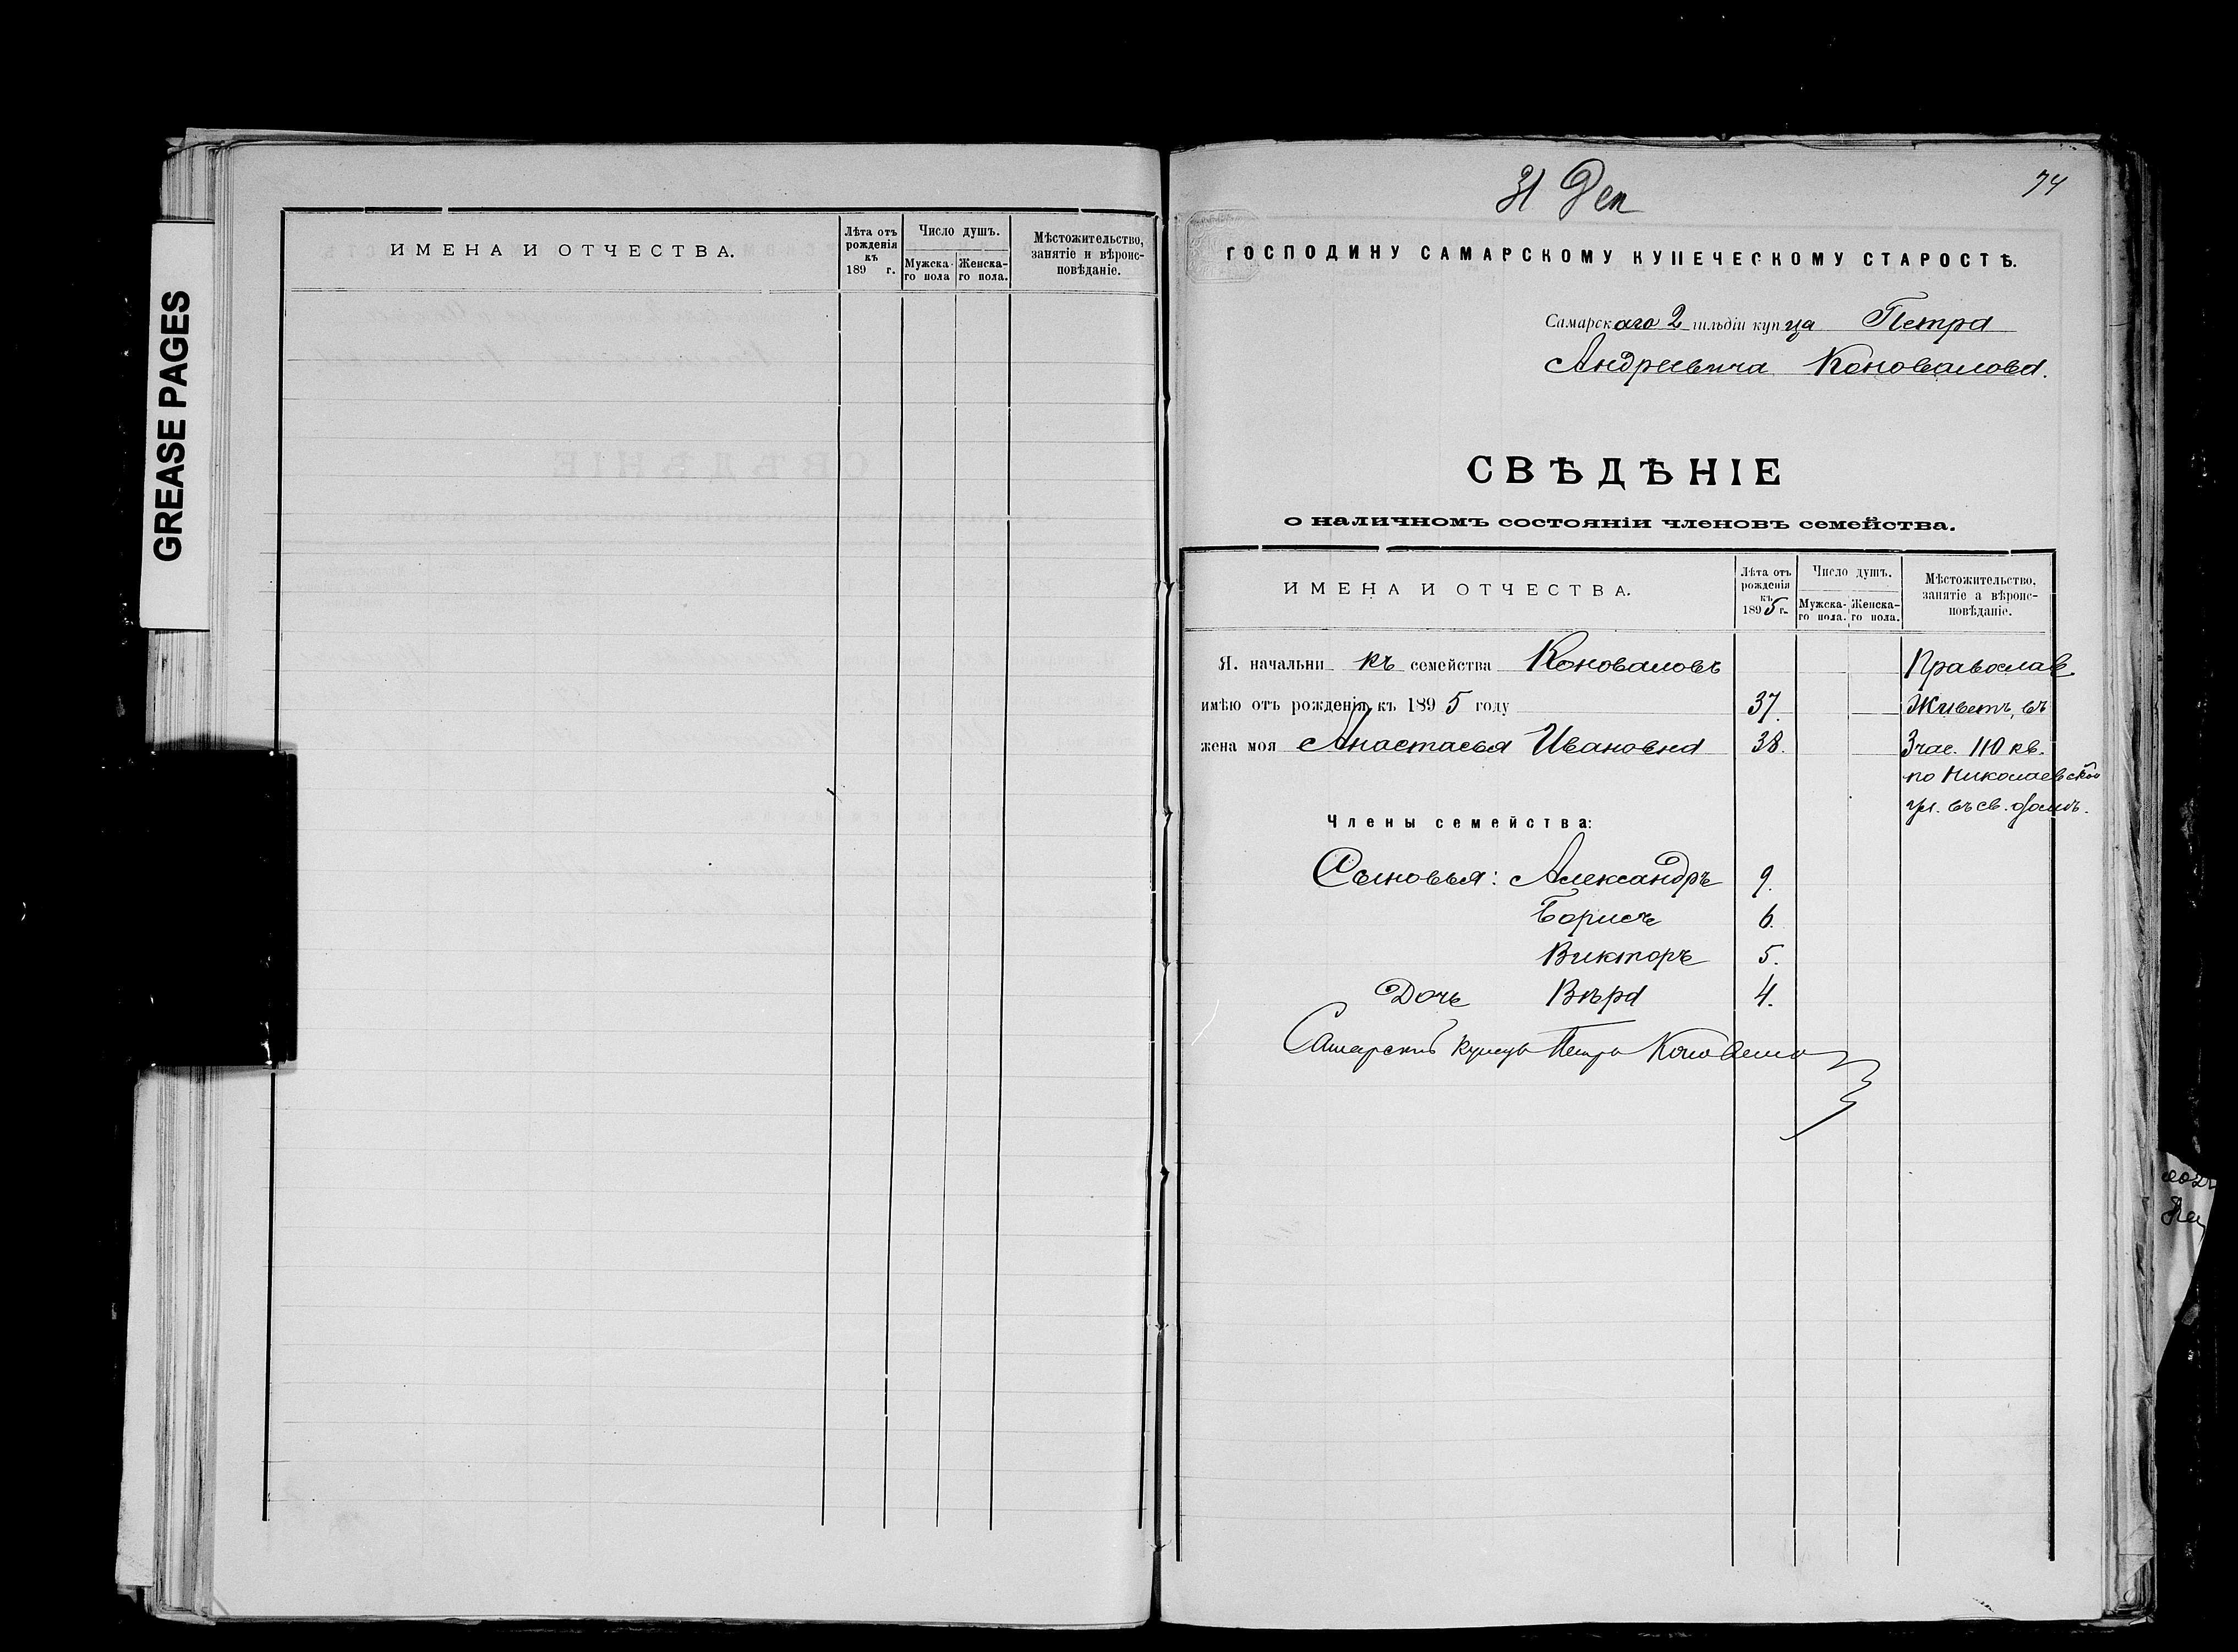 GREASE PAGES
ИМЕНА И ОТЧЕСТВА.
Лѣта отъ рожденія къ 189 г.
Число душъ.
Мужска-го пола
Женска-го пола.
Мѣстожительство, занятіе и вѣроис-повѣданіе.
31 Дек
74
ГОСПОДИНУ САМАРСКОМУ КУПЕЧЕСКОМУ СТАРОСТѢ.
Самарскаго 2 гильдіи купца Петра
Андреевича Коновалова.
СВѢДѢНІЕ
о наличномъ состояніи членовъ семейства.
ИМЕНА И ОТЧЕСТВА.
Лѣта отъ рожденія къ 1895 г.
Число душъ.
Мужска-го пола.
Женска-го пола.
Мѣстожительство, занятіе а вѣроис-повѣданіе.
Я. начальникъ семейства Коноваловъ
Православ.
имѣю отъ рожденія къ 1895 году 37. Живетъ, въ
жена моя Анастасья Ивановна 38. 3 час. 110 кв.
по Николаевской
ул. въ св. домѣ.
Члены семейства:
Сыновья: Александръ 9.
Борисъ 6.
Викторъ 5.
Дочь Вѣра 4.
Самарскій купецъ Петръ Коновалов